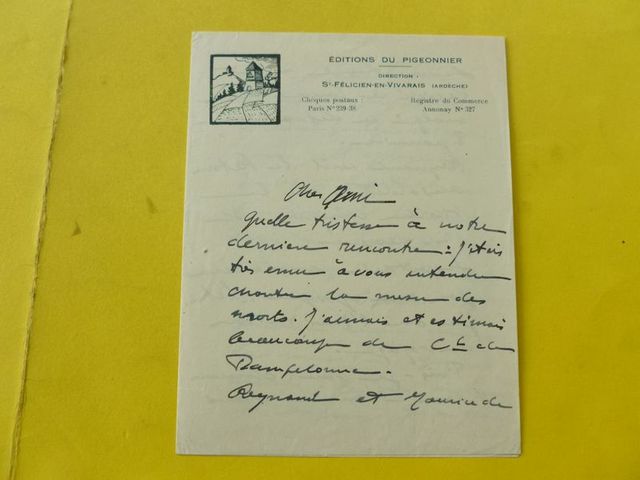 ÉDITIONS DU PIGEONNIER
DIRECTION :
St-FÉLICIEN-EN-VIVARAIS (ARDÈCHE)
Chèques postaux :
Paris No 239-38
Registre du Commerce
Annonay No 327
Cher Ami
Quelle tristesse à notre
dernière rencontre : J'étais
très ému à vous entendre
chanter la messe des
morts. J'aimais et estimais
beaucoup le Cte de
Pampelonne.
Reynaud et Maurice de